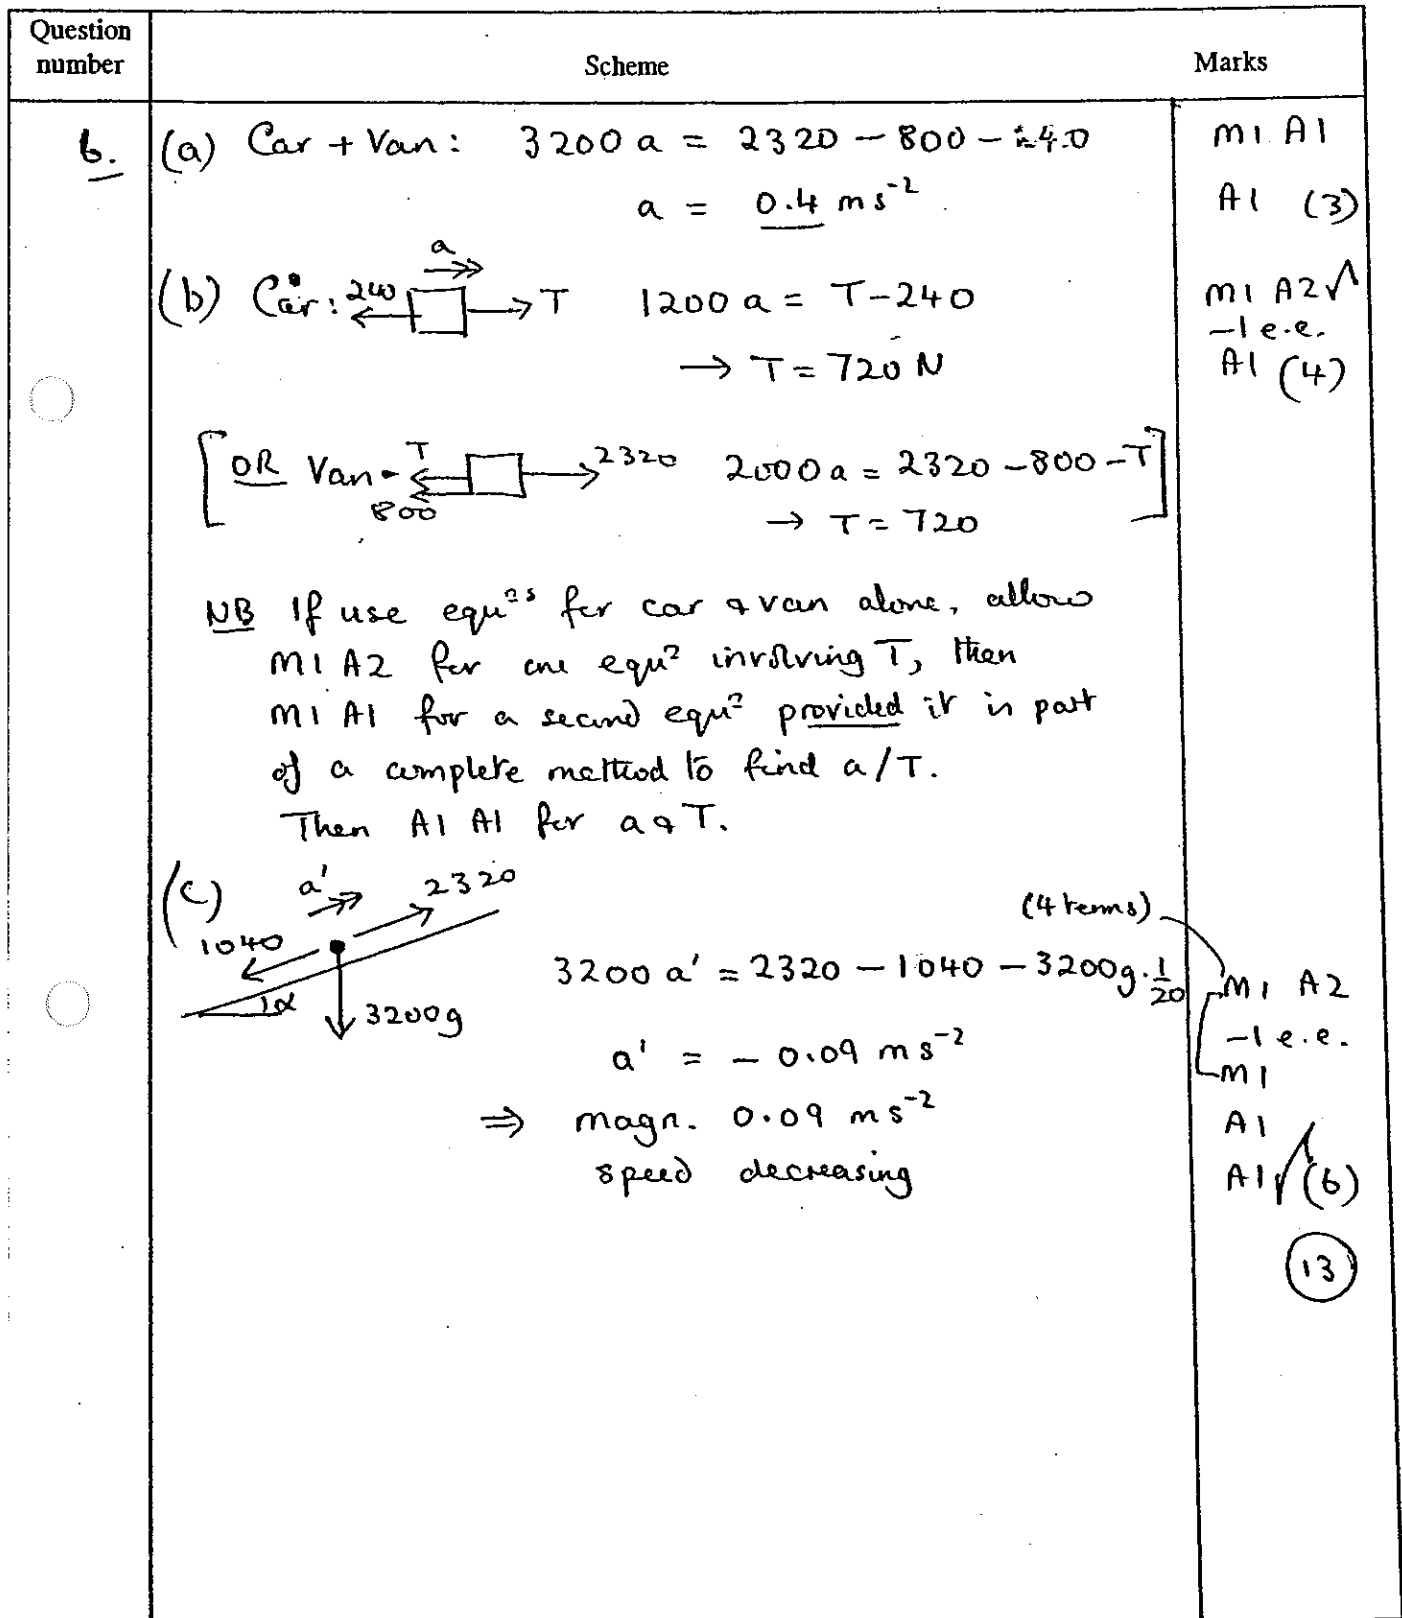 Question number Scheme Marks
6. (a) Car + Van: 3200 a = 2320 - 800 - 240 M1 A1
a = 0.4 ms⁻² A1 (3)
a
(b) Car: 240 T 1200 a = T - 240 M1 A2√
-1 e.e.
→ T = 720 N A1 (4)
[OR Van - T 2320 2000 a = 2320 - 800 - T]
800 → T = 720
NB If use equⁿˢ for car & van alone, allow
M1 A2 for one equⁿ involving T, then
M1 A1 for a second equⁿ provided it is part
of a complete method to find a/T.
Then A1 A1 for a & T.
(c) a' 2320 (4 terms)
1040 3200 a' = 2320 - 1040 - 3200g.1/20 M1 A2
α 3200g -1 e.e.
a' = - 0.09 ms⁻² M1
⇒ magn. 0.09 ms⁻² A1
speed decreasing A1√ (6)
13